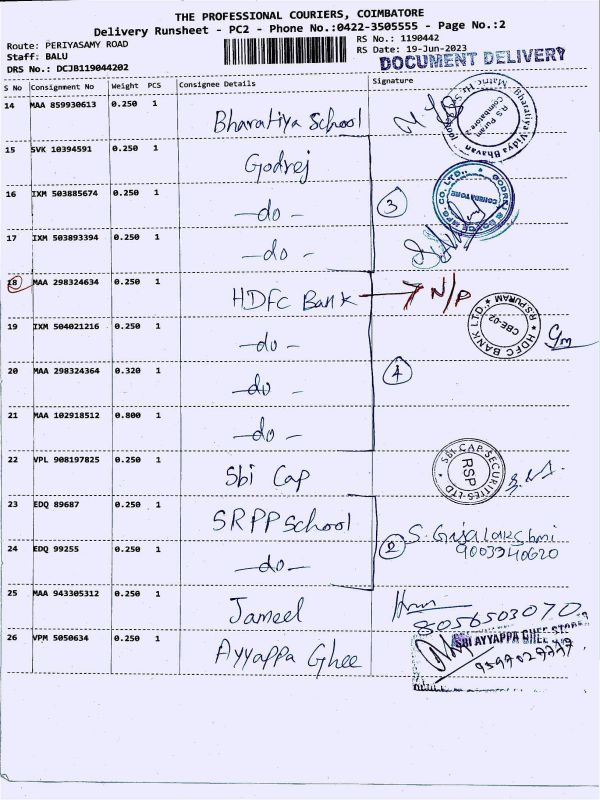 THE PROFESSIONAL COURIERS, COIMBATORE
Delivery Runsheet - PC2 - Phone No.:0422-3505555 - Page No.:2
Route: PERIYASAMY ROAD RS No.: 1190442
Staff: BALU RS Date: 19-Jun-2023
DRS No.: DCJB119044202 DOCUMENT DELIVERY
S No Consignment No Weight PCS Consignee Details Signature
14 MAA 859930613 0.250 1 Bharatiya School
Bharatiya Vidya Bhavan Matric R.S Puram Coimbatore-2
15 SVK 10394591 0.250 1 Godrej
16 IXM 503885674 0.250 1 -do- 3
GODREJ & BOYCE MFG. CO. LTD., COIMBATORE
17 IXM 503893394 0.250 1 -do-
18 MAA 298324634 0.250 1 HDFC Bank → N/P
HDFC BANK LTD., R.S.PURAM CBE-02
19 IXM 504021216 0.250 1 -do-
20 MAA 298324364 0.320 1 -do- 4
21 MAA 102918512 0.800 1 -do-
22 VPL 908197825 0.250 1 Sbi Cap
SBI CAP SECURITIES LTD RSP
23 EDQ 89687 0.250 1 SRPP School
S. Gijalakshmi
24 EDQ 99255 0.250 1 -do- 2 9003340620
25 MAA 943305312 0.250 1 Jameel
8056503070
26 VPM 5050634 0.250 1 Ayyappa Ghee
SRI AYYAPPA GHEE STORE